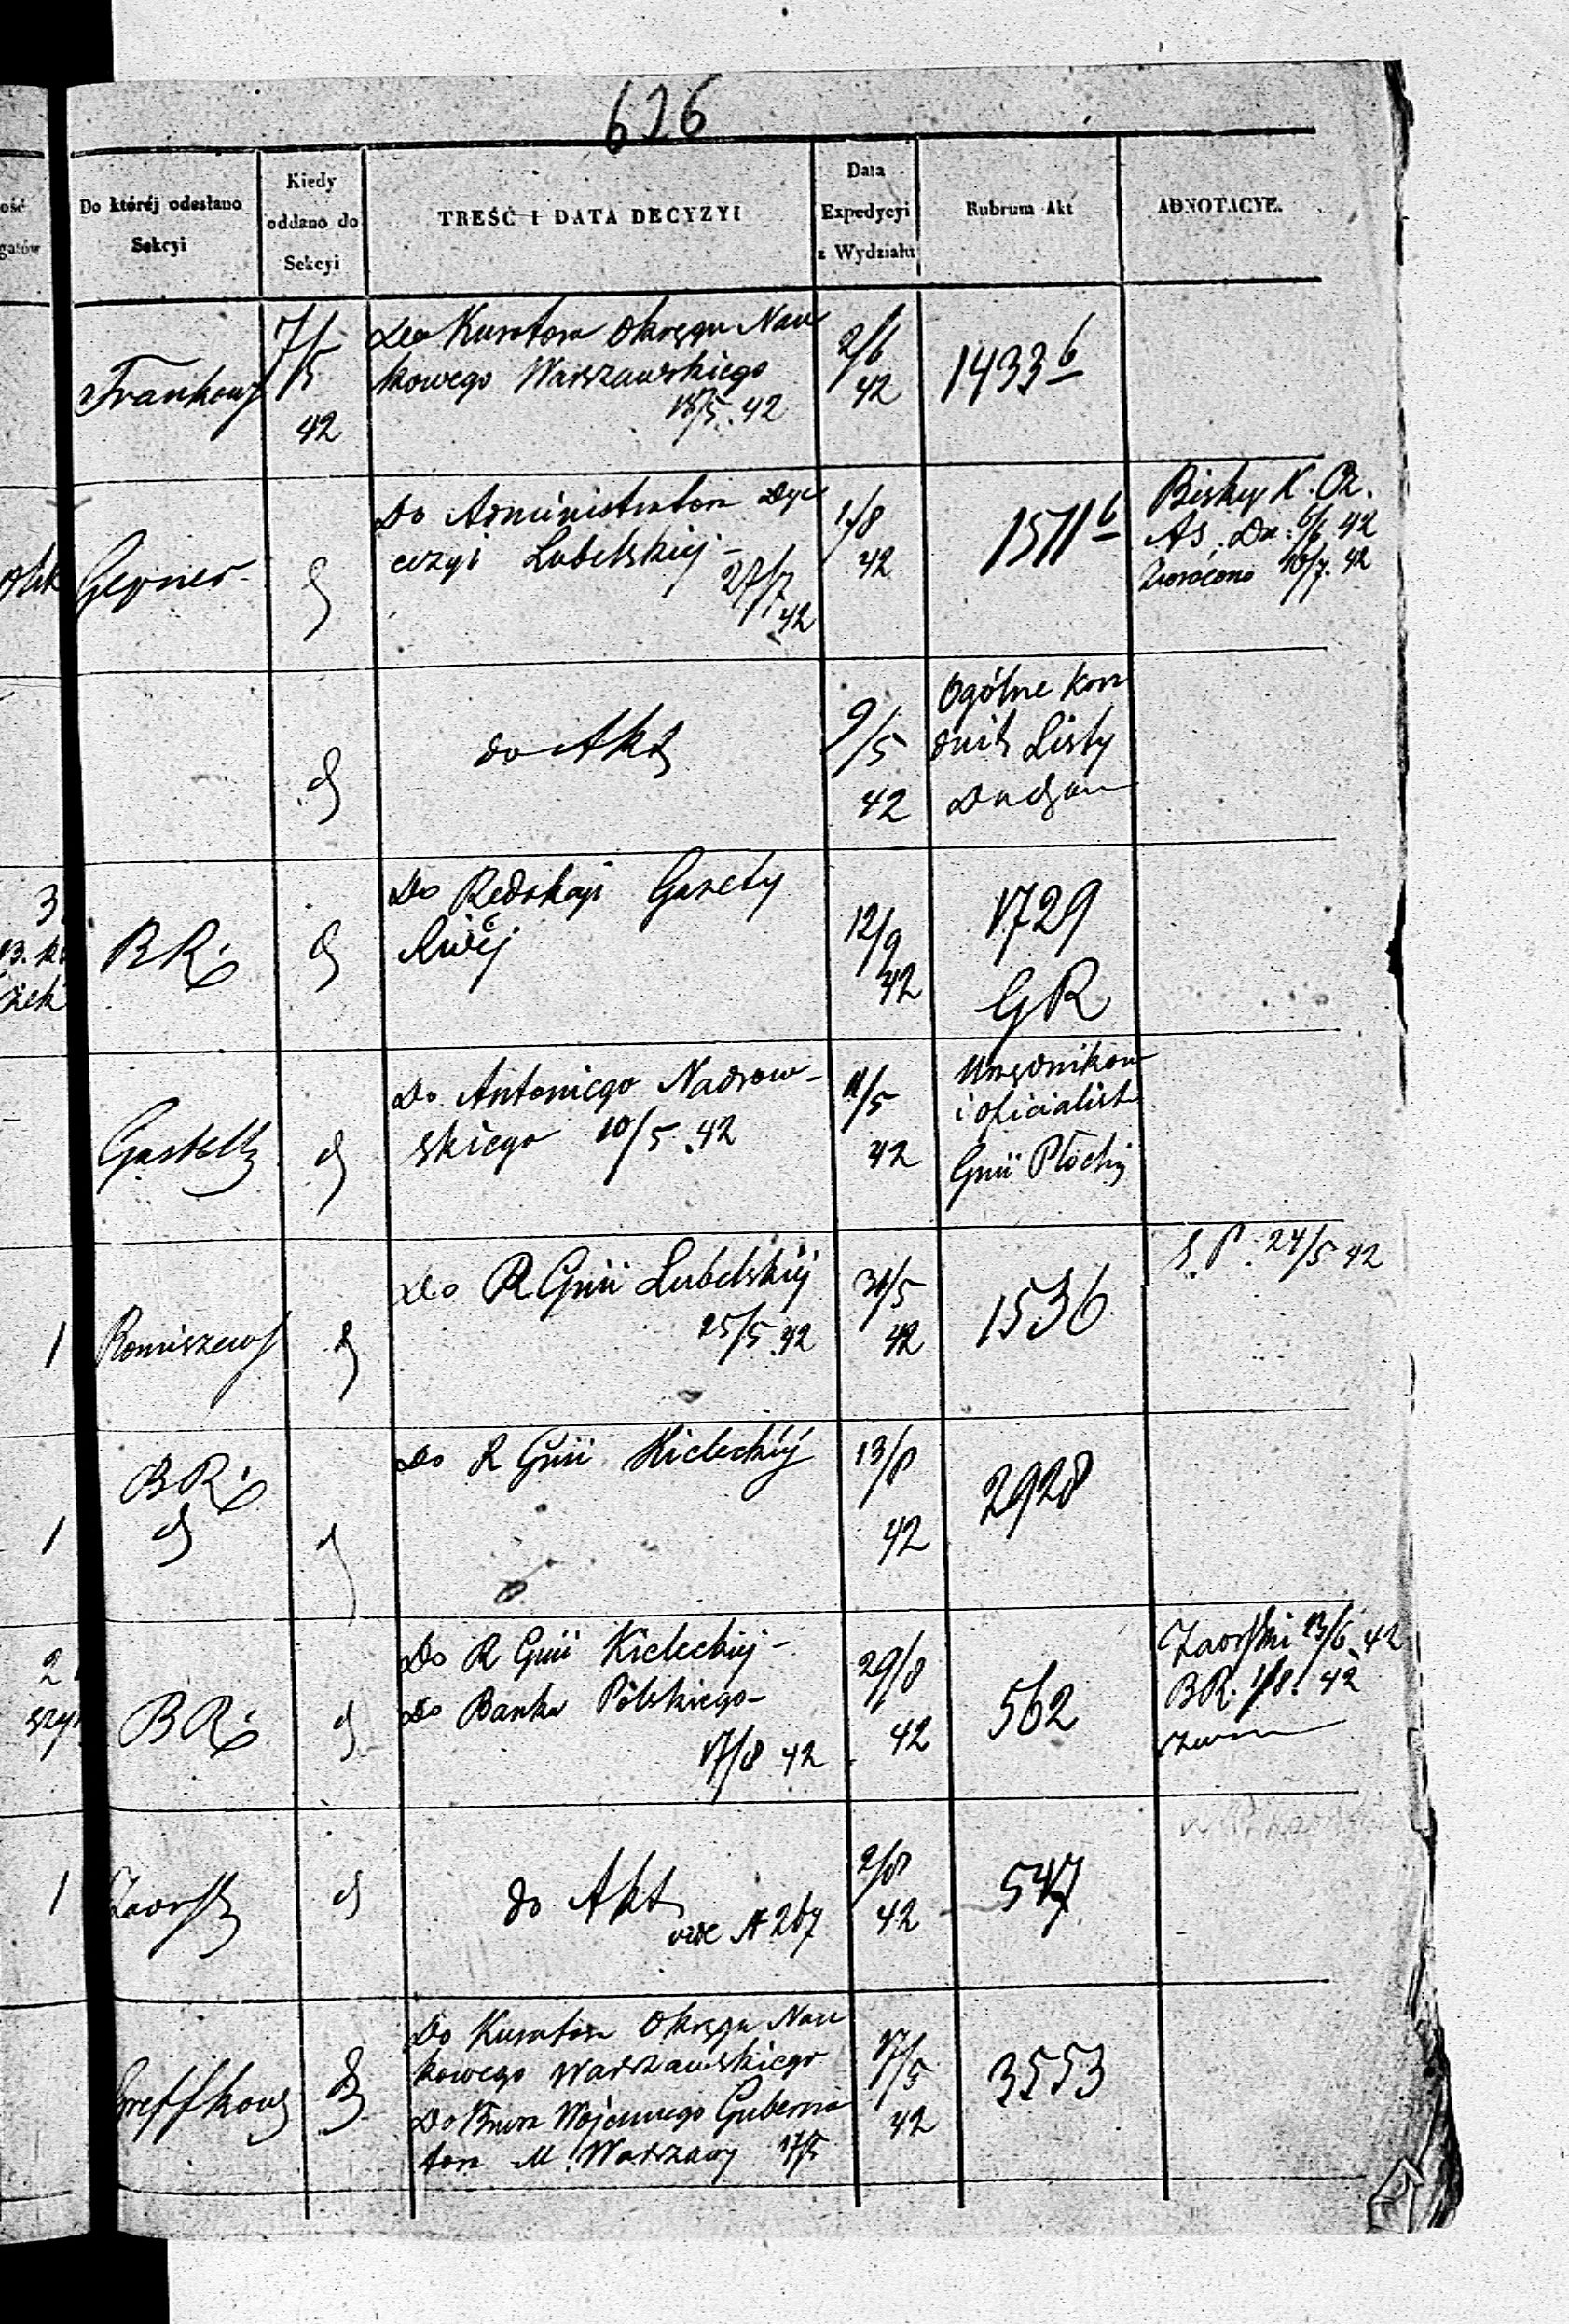 626
Do któréj odesłano
Sekcyi
Kiedy
oddano do
Sekcyi
TREŚĆ I DATA DECYZYI
Data
Expedycyi
z Wydziału
Rubrum Akt
ADNOTACYE.
7/5
42
Do Kuratora Okręgu Nau
kowego Warszawskiego
18/5. 42
2/6
42
1433 b
Gepner
Do Administratora Dye
cezyi Lubelskiej -
27/7
42
1/8
42
1511 b
As. Dn. 6/6 42
Zwrócono 10/7. 42
do Akt
9/5
42
Ogólne
Listy
BR.
Do Redakcyi Gazety
Rząd
12/9
42
1729
GR
Do Antoniego Nadrow-
skiego 10/5. 42
11/5
42
Urzędników
i oficialist
Gnii Płockiej
1
Romiszews
Do R Gnii Lubelskiej
25/5. 42
31/5
42
1536
S. P. 24/5 42
1
BR.
Do R Gnii Kieleckiej
13/8
42
2928
2
BR.
Do R Gnii Kieleckiej -
Do Banku Polskiego -
17/8 42
29/8
42
562
Zaorski 13/6. 42
BR. 1/8. 42
1
Zaorsk
do Akt
vide N 267
2/8
42
547
Do Kuratora Okręgu Nau
kowego Warszawskiego
Do Biura Wojennego Guberna
tora M. Warszawy 17/5
17/5
42
3553